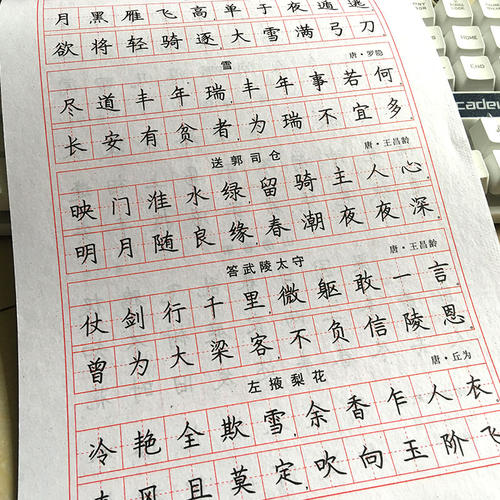 月黑雁飞高单于夜遁逃
欲将轻骑逐大雪满弓刀
雪
唐·罗隐
尽道丰年瑞,丰年事若何
长安有贫者,为瑞不宜多
送郭司仓
唐·王昌龄
映门淮水绿,留骑主人心
明月随良缘,春潮夜夜深
答武陵太守
唐·王昌龄
仗剑行千里,微躯敢一言
曾为大梁客,不负信陵恩
左掖梨花
唐·丘为
冷艳全欺雪,余香乍人衣
春风且莫定,吹向玉阶飞
cadev
END
HOME